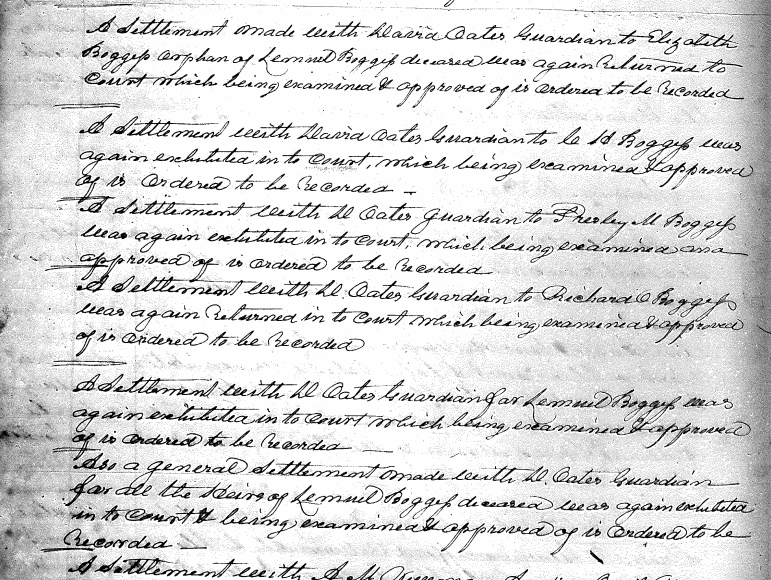 A Settlement made with David Oates Guardian to Elizabeth
Boggess orphan of Lemuel Boggess deceased was again Returned to
Court which being examined & approved of is ordered to be Recorded
A Settlement with David Oates Guardian to C H Boggess was
again exhibited in to Court, which being examined & approved
of is Ordered to be Recorded
A Settlement with D Oates Guardian to Presley M Boggess
was again exhibited in to Court, which being examined and
approved of is ordered to be Recorded
A Settlement with D. Oates Guardian to Richard O Boggess
was again Returned in to Court which being examined & approved
of is ordered to be Recorded
A Settlement with D Oates Guardian for Lemuel Boggess was
again exhibited in to Court which being examined & approved
of is ordered to be Recorded
Also a general Settlement made with D Oates Guardian
for all the Heirs of Lemuel Boggess deceased was again exhibited
in to Court & being examined & approved of is Ordered to be
Recorded
A Settlement with A M